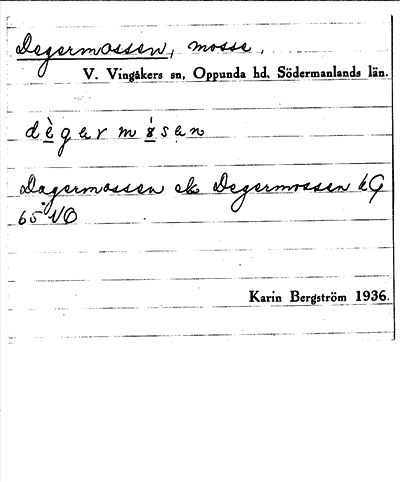 Degermossen, mosse,
V. Vingåkers sn, Oppunda hd, Södermanlands län.
dègermo̊sen
Dagermossen el. Degermossen kG
65 NO
Karin Bergström 1936.